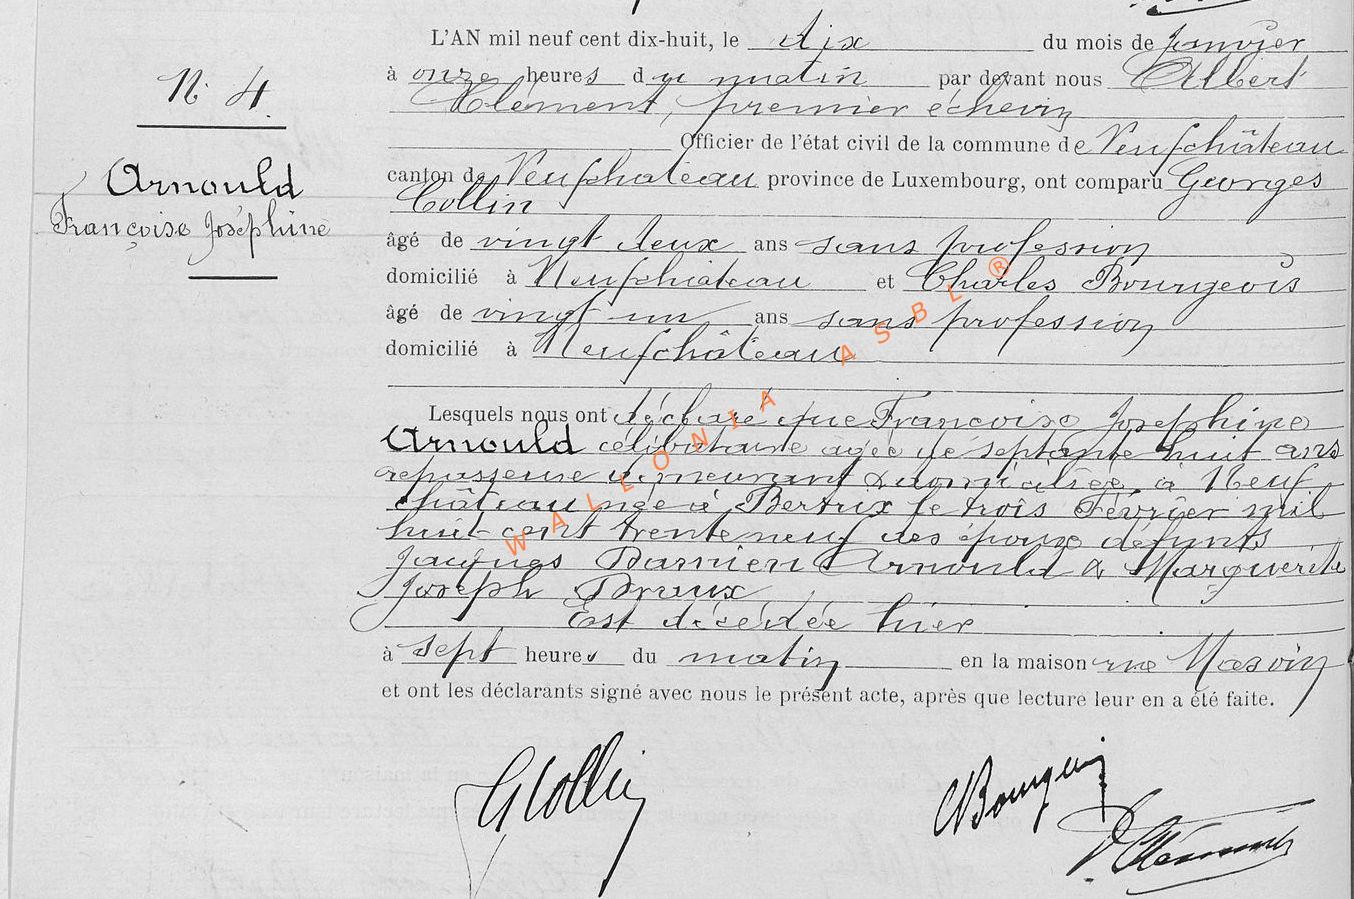 L'AN mil neuf cent dix-huit, le dix du mois de janvier
N. 4.
à onze heures du matin par devant nous Albert
Clément, premier échevin
Officier de l'état civil de la commune de Neufchâteau
Arnould
canton de Neufchateau province de Luxembourg, ont comparu Georges
Collin
Françoise Joséphine
âgé de vingt deux ans sans profession
domicilié à Neufchâteau et Charles Bourgeois
âgé de vingt un ans sans profession
domicilié à Neufchâteau
Lesquels nous ont déclaré que Françoise Josephine
Arnould célibataire agée de septante huit ans
repasseuse demeurant & domiciliée à Neuf
château née à Bertrix le trois Février mil
huit cent trente neuf des époux défunts
Jacques Damien Arnould & Marguerite
Joseph
Est décédée hier
à sept heures du matin en la maison rue
et ont les déclarants signé avec nous le présent acte, après que lecture leur en a été faite.
G Collin
C Bourgeois
Clément
WALLONIA ASBL ®